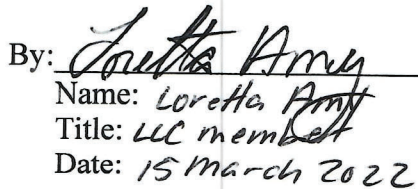 By: Loretta Amy
Name: Loretta Amy
Title: LLC member
Date: 15 March 2022